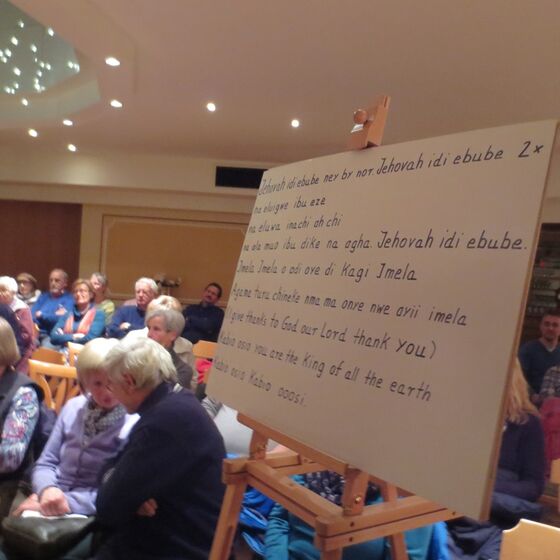 Jehovah idi ebube ney by nor Jehovah idi ebube 2x
na eluigwe ibu eze
na eluwa inachi ah chi
na ela muo ibu dike na agha. Jehovah idi ebube.
Imela Imela o odi ove di Kagi Imela
Agame turu chineke nma ma onye nwe ayii imela
(give thanks to God our Lord thank you)
Kabio osio you are the King of all the earth
Kabio osio Kabio ooosi.